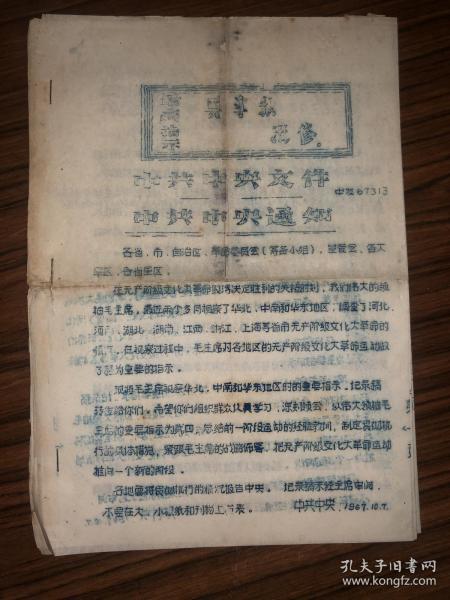 最高指示
要斗私
批修。
中共中央文件
中发67313
中共中央通知
各省、市、自治区、革命委员会(筹备小组)，军管会、各大
军区、各省军区
在无产阶级文化大革命取得决定性胜利的关键时刻，我们伟大的领
袖毛主席，最近两个多月视察了华北，中南和华东地区，调查了河北
河南、湖北、湖南、江西、浙江、上海等省市无产阶级文化大革命的
情况，在视察过程中，毛主席对各地区的无产阶级文化大革命运动做
了极为重要的指示。
现将毛主席视察华北，中南和华东地区时的重要指示，记录稿
转发给你们，希望你们组织群众认真学习，深刻领会，以伟大领袖毛
主席的重要指示为武器，总结前一阶段运动的经验教训，制定贯彻执
行的具体措施，紧跟毛主席的战略部署，把无产阶级文化大革命运动
推向一个新的阶段。
各地要将贯彻执行的情况报告中央。记录稿未经主席审阅
不要在大、小报纸和刊物上发表。
中共中央，1967.10.7.
孔夫子旧书网
www.kongfz.com